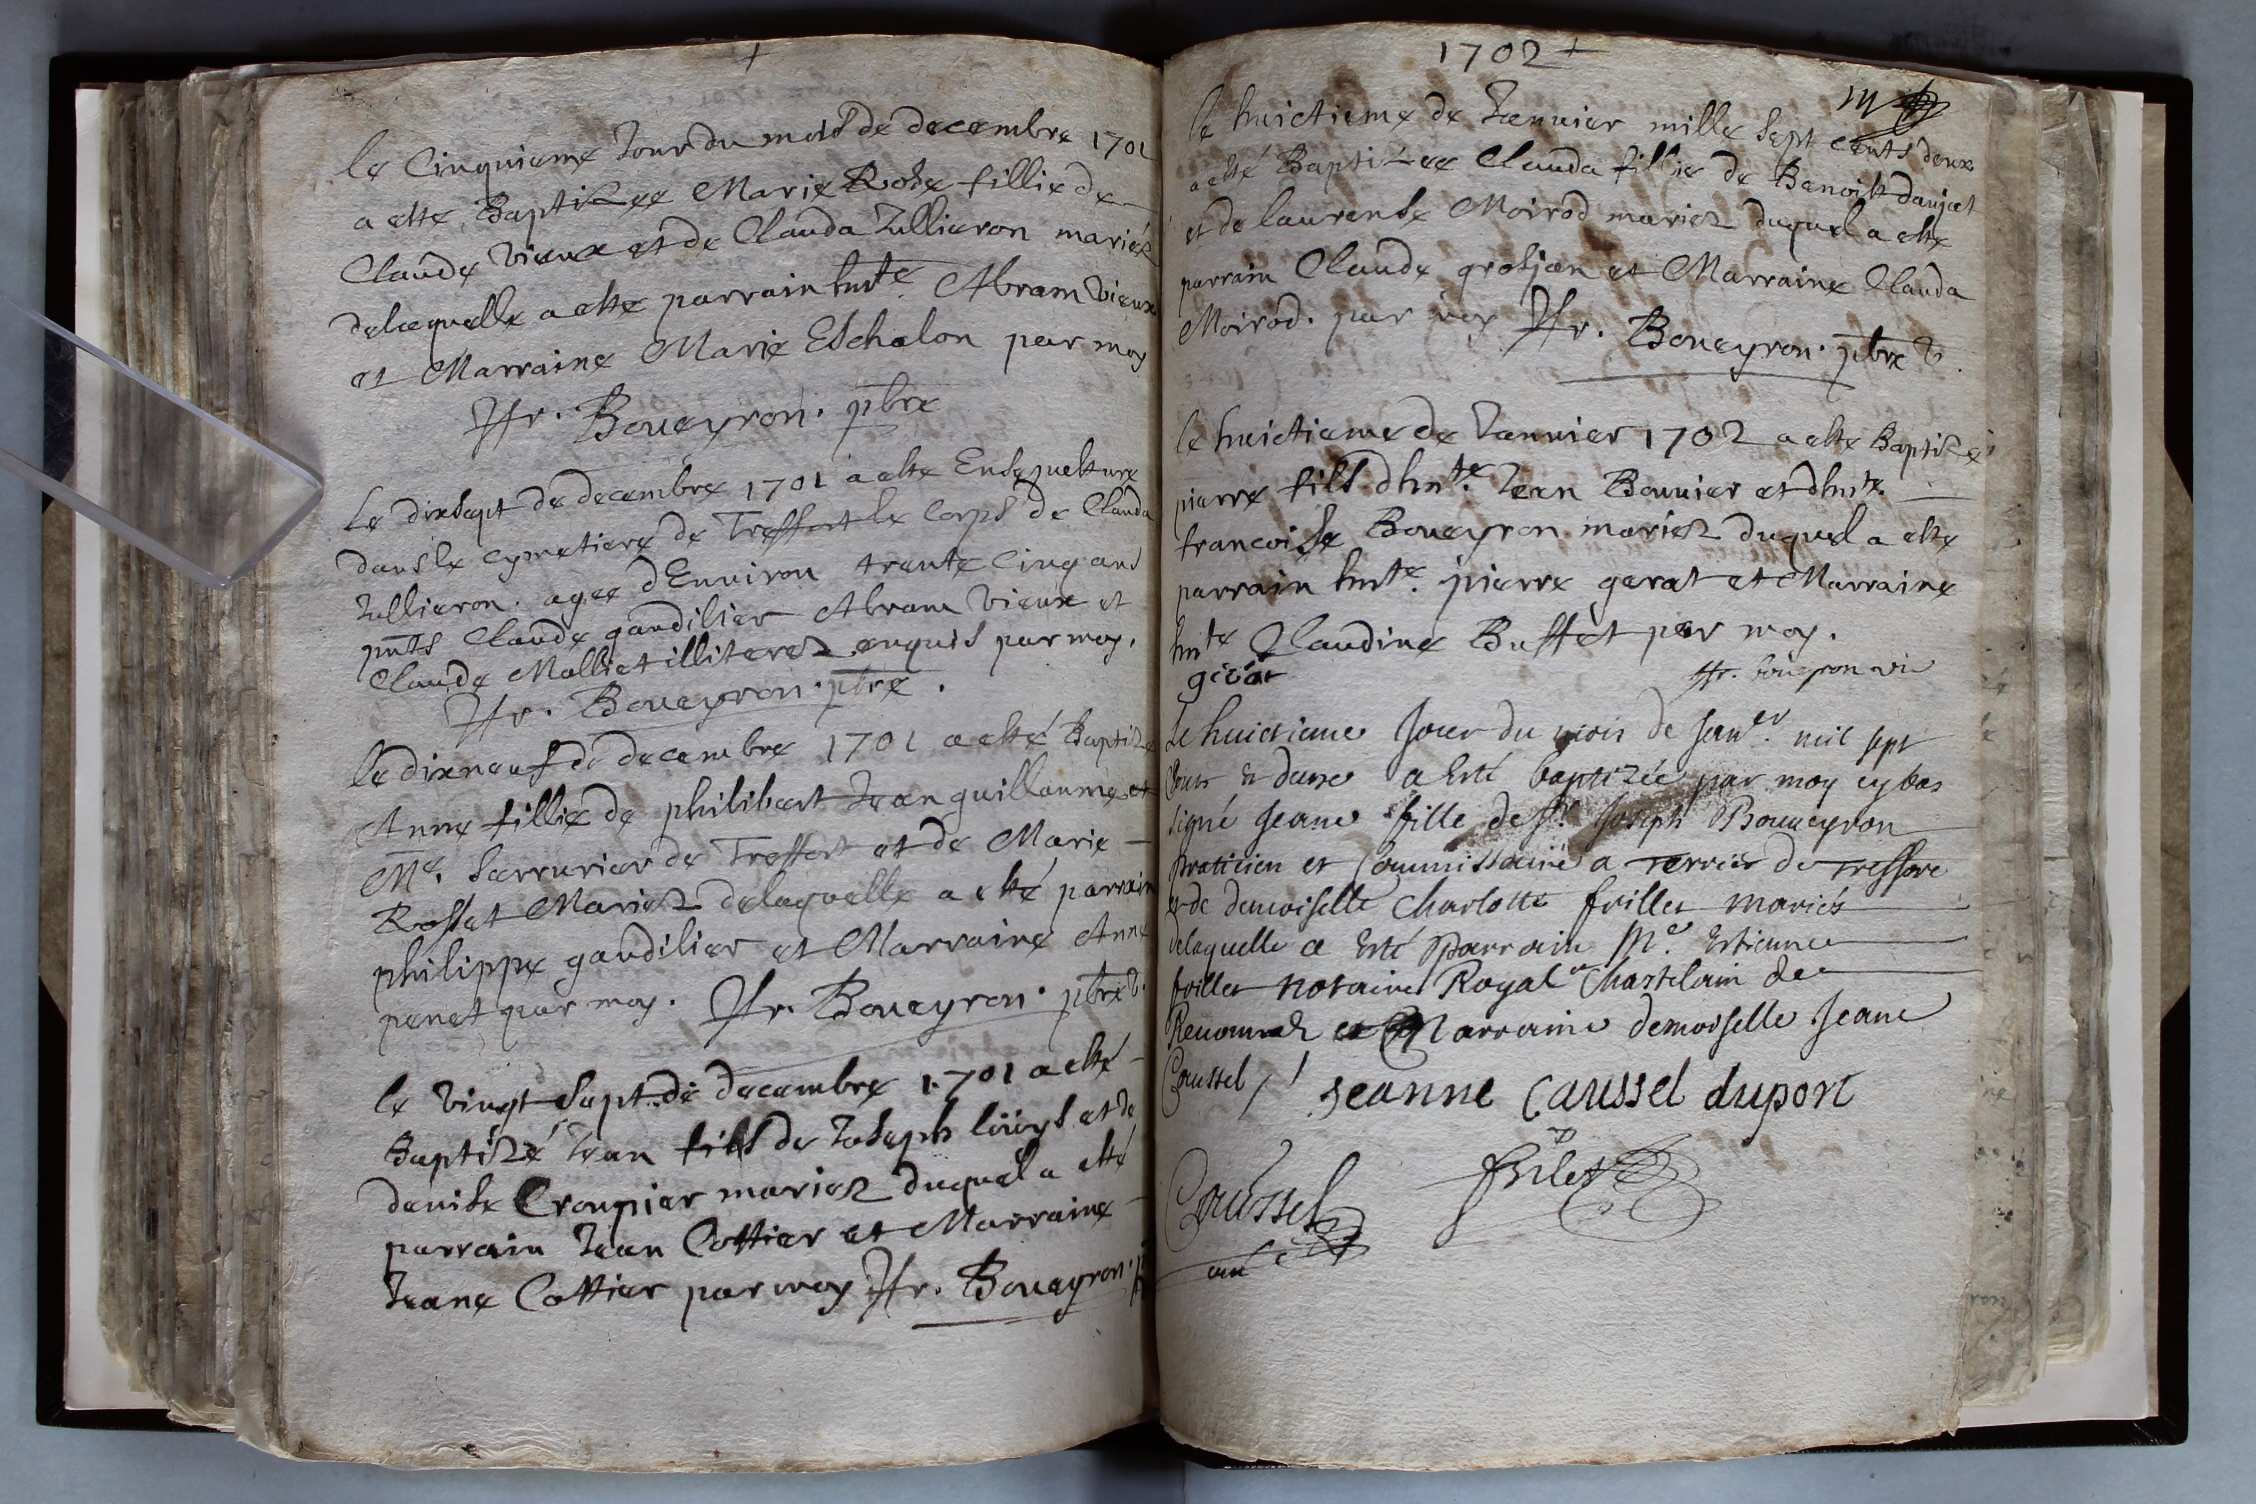 le Cinquieme Jour du mois de decembre 1701
a esté Baptizee Marie Rose fillie de
Claude vieux et de Clauda Jullieron mariéz
delaquelle a esté parrain hnte Abram vieux
et Marraine Marie Eschalon par moy
Boueyron. pbre
Le dixsept de decembre 1701 a esté Ensepuelture
dans le cymetiere de Treffort le Corps de Clauda
Jullieron. agee dEnviron trente Cinq ans
pnts Claude gaudilier Abram vieux et
Claude Molliet illiterez enquis par moy.
Boueyron. pbre.
le dixneuf de decembre 1701 a esté Baptizé
Anne fillie de philibert Jean guillaume et
Me. Serrurier de Treffort et de Marie
Rosset Mariez delaquelle a esté parrain
philippe gaudilier et Marraine Anne
penet par moy. Boueyron. pbre v.
le vingt sept de decembre 1701 a esté
Baptizé Jean fils de Joseph loüys et de
denise Croupier mariez duquel a esté
parrain Jean Cottier et Marraine
Jeane Cottier par moy Boueyron.
1702
le huictieme de Jenvier mille sept cents deux
a esté Baptizee Clauda fillie de Benoist daujat
et de laurense Moirod mariez duquel a esté
parrain Claude grosjan et Marraine Clauda
Moirod. par moy Boueyron. pbre v.
le huictieme de Janvier 1702 a esté Baptizé
pierre fils dhnte. Jean Bouvier et dhnte.
francoise Boueyron mariez duquel a esté
parrain hnte. pierre gerat et Marraine
hnte Claudine Buffet par moy.
boüeyron vic
Le huictieme Jour du mois de Janer. mil sept
Cents et deux a Esté baptizée par moy cy bas
signé Jeane fille de Sr. Joseph Boueyron
praticien et Commissaire a Terrier de Treffort
et de demoiselle Charlotte frillet mariés
delaquelle a Esté Parrain Me. Estienne
frillet notaire Royal Chastelain de
et Marraine demoiselle Jeane
Coussel
Jeanne Caussel dupont
Coussel frilet